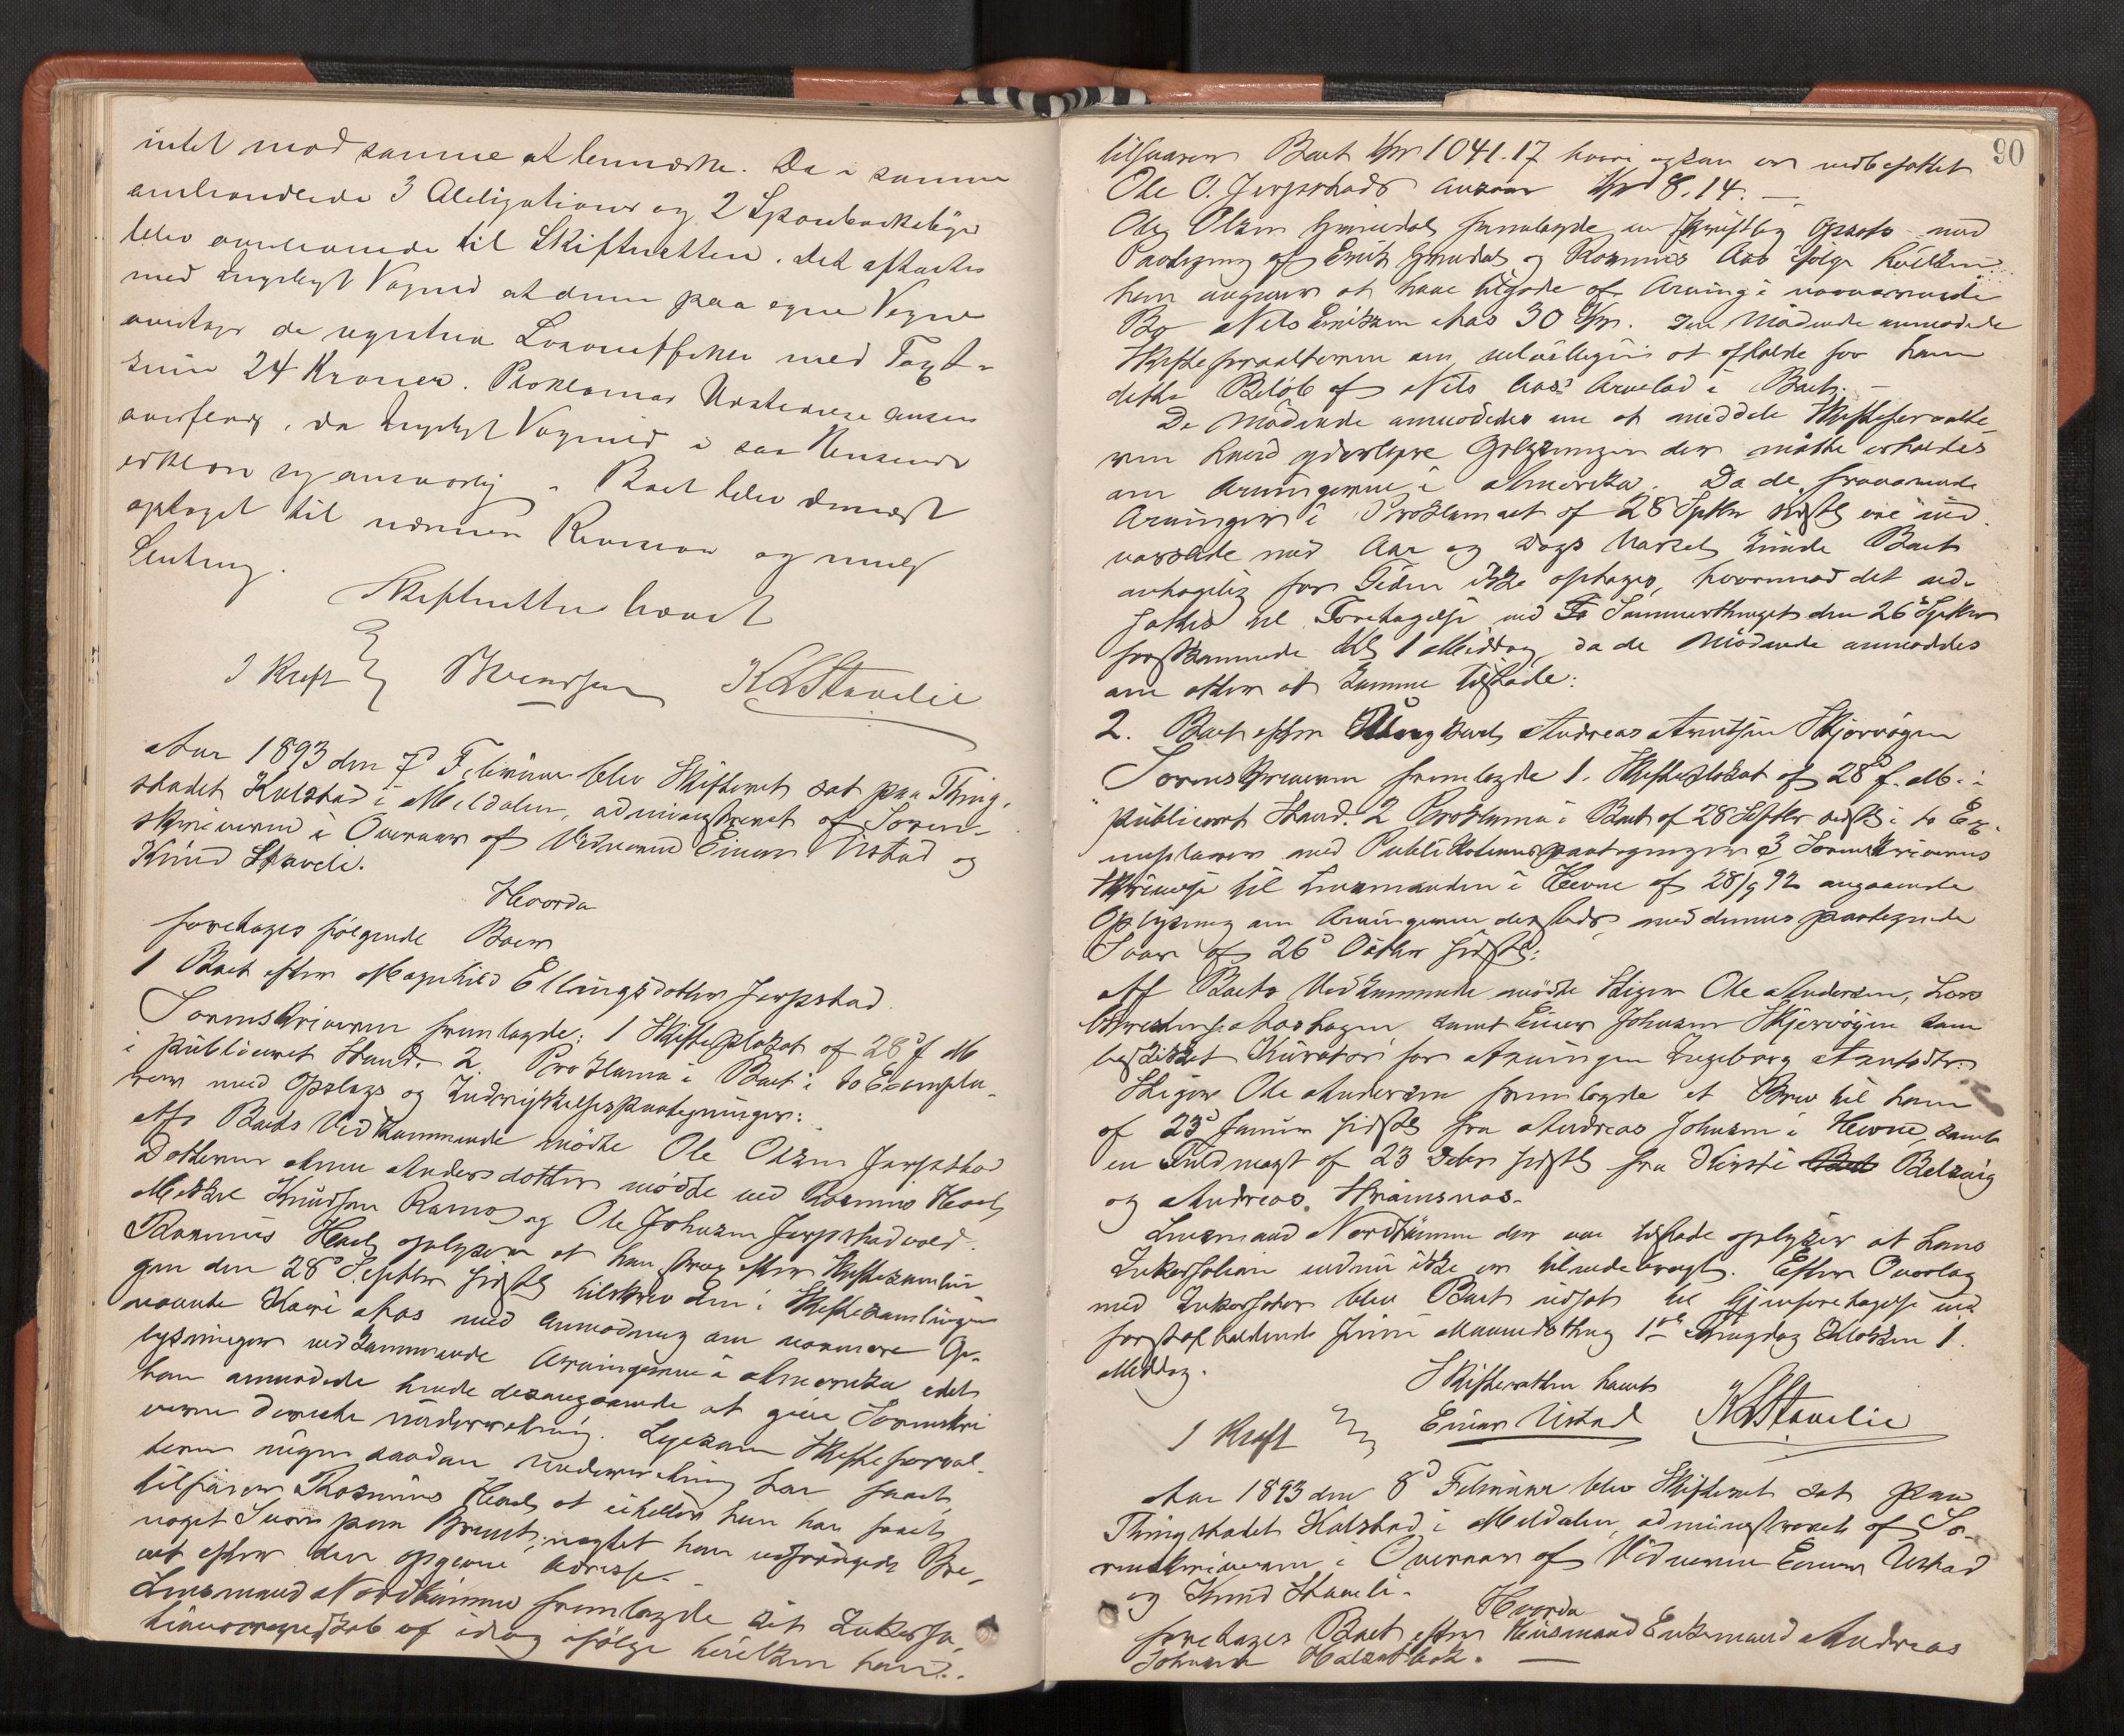 intet mod samme at bemærke. Da i samme
omhandlede 3 Obligationer og 2 Sparebankbøger
blev overleverede til Skifteretten. Det aftaltes
med Ingebrigt Vognild at denne paa egne Vegne
overtager de registrerede Løsøreeffekter med Taxt-
sum 24 Kroner. Proklamas Udstedelse ansees
overflødig, da Ingebrigt Vognild i saa Henseende
erklærer sig ansvarlig. Boet blev dernæst
optaget til nærmere Revision og mulig
Slutning.
Skifteretten hævet
J Kraft Svendsen K L Stavelie
Aar 1893 den 7de Februar blev Skifteret sat paa Thing-
stedet Kalstad i Meldalen, administreret af Soren-
skriveren i Overvær af Vidnerne Einar Ustad og
Knud Staveli.
Hvorda
foretages følgende Boer
1 Boet efter Magnhild Ellingsdotter Jerpstad.
Sorenskriveren fremlagde: 1 Skifteplakat af 28de f M
i publiceret Stand. 2. Proklama i Boet i to Exempla-
rer med Opslags og Indrykkelsespaategninger:
Af Boets Vedkommende mødte Ole Olsen Jerpstad
Dotteren Anne Andersdotter mødte ved Rasmus Hoel,
Mikkel Knudsen Ramo og Ole Johnsen Jerpstadvold.
Rasmus Hoel oplyser at han strax efter Skiftesamlin-
gen den 28de Septbr sidstl tilskrev den i Skiftesamlingen
nævnte Kari Aas med Anmodning om nærmere Op-
lysninger vedkommende Arvingerne i Amerika idet
han anmodede hende desangaaende at give Sorenskri
veren directe Underretning. Ligesom Skifteforval-
teren ingen saadan Underretning har faaet,
tilføier Rasmus Hoel at eiheller han har faaet
noget Svar paa Brevet, uagtet han udførligen Bre-
vet efter den opgivne Adresse.
Lensmand Nordkinn fremlagde sit Inkassa-
tionsregnskab af idag ifølge hvilken han
90
tilsvarer Boet Kr 1041.17 hvori ogsaa er indbefattet
Ole O. Jerpstads Ansvar Kr 8.14.
Ole Olsen Grindal fremlagde en skriftlig Opsats med
Paategning af Erik Grindal og Rasmus Aas ifølge hvilken
han angiver at have tilgode af Arving i nærværende
Bo Nils Eriksen Aas 30 Kr. Den Mødende anmodede
Skifteforvalteren om velvilligen at afholde for ham
dette Beløb af Nils Aas' Arvelod i Boet.
De Mødende anmodedes om at meddele Skifteforvalte-
ren hvad yderligere Oplysninger der maatte erholdes
om Arvingerne i Amerika. Da de fraværende
Arvinger i Proklamaet af 28 Septbr sidstl ere ind-
varslede med Aar og Dags Varsel kunde Boet
antagelig for Tiden ikke optages, hvornæst det ud-
sattes til Foretagelse ved Sommerthinget den 26de Septbr
førstkommende Kl 1 Middag, da de Mødende anmodedes
om atter at komme tilstede:
2. Boet efter Ungkarl Andreas Arntsen Skjervøgen
Sorenskriveren fremlagde 1. Skifteplakat af 28de f. M. i
publiceret Stand. 2 Proklama i Boet af 28 Septbr sidstl i to Ex-
emplarer med Publikationspaategninger 3 Sorenskriverens
Skrivelse til Lensmanden i Hevne af 28/9 92 angaaende
Oplysning om Arvingerne dersteds, med dennes paategnede
Svar af 26de Octbr sidstl:
Af Boets Vedkommende mødte Skiger Ole Andersen, Lars
Aashagen samt Einar Johnsen Skjervøgen som
beskikket Kurator for Arvingen Ingeborg Arntsdtr.
Skiger Ole Andersen fremlagde et Brev til ham
af 23de Januar sidstl fra Andreas Johnsen i Hevne, samt
en Fuldmagt af 23 Debr sidstl fra Kirsti Belsvig
og Andreas Strømsnas.
Lensmand Nordkinn der var tilstede oplyser at hans
Inkassation endnu ikke er tilendebragt. Efter Overlæg
med Inkassator blev Boet udsat til Gjenforetagelse ved
førstafholdende Juni Maanedsthing 1ste Thingdag Klokken 1
Middag.
Skifteretten hævet
J Kraft Einar Ustad K L Stavelie
Aar 1893 den 8de Februar blev Skifteret sat paa
Thingstedet Kalstad i Meldalen, administreret af So-
renskriveren i Overvær af Vidnerne Einar Ustad
og Knud Staveli.
Hvorda
foretages Boet efter Huusmand Enkemand Andreas
Johnsen